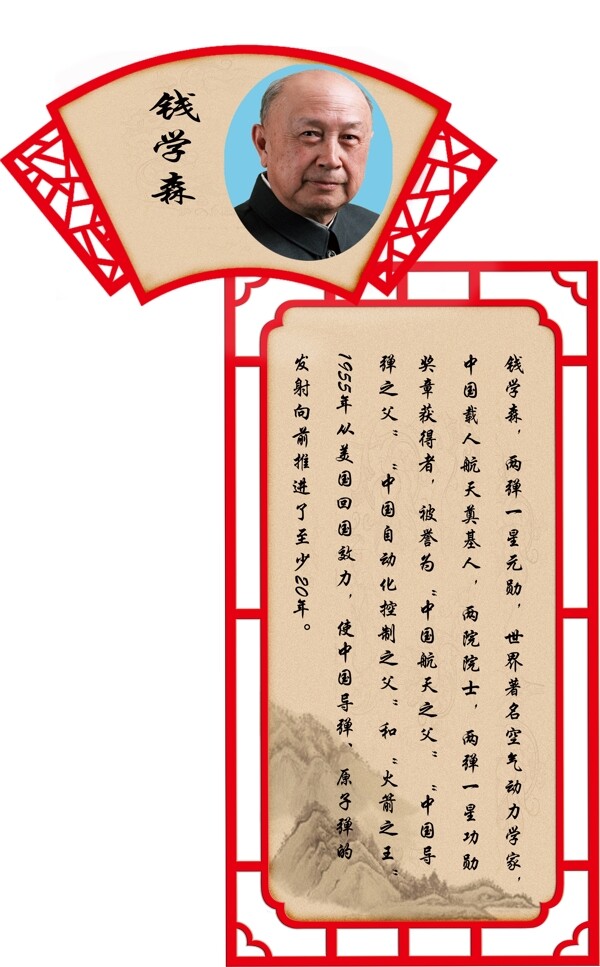 钱学森
钱学森，两弹一星元勋，世界著名空气动力学家，
中国载人航天奠基人，两院院士，两弹一星功勋
奖章获得者，被誉为“中国航天之父”“中国导
弹之父”“中国自动化控制之父”和“火箭之王”
1955年从美国回国效力，使中国导弹、原子弹的
发射向前推进了至少20年。